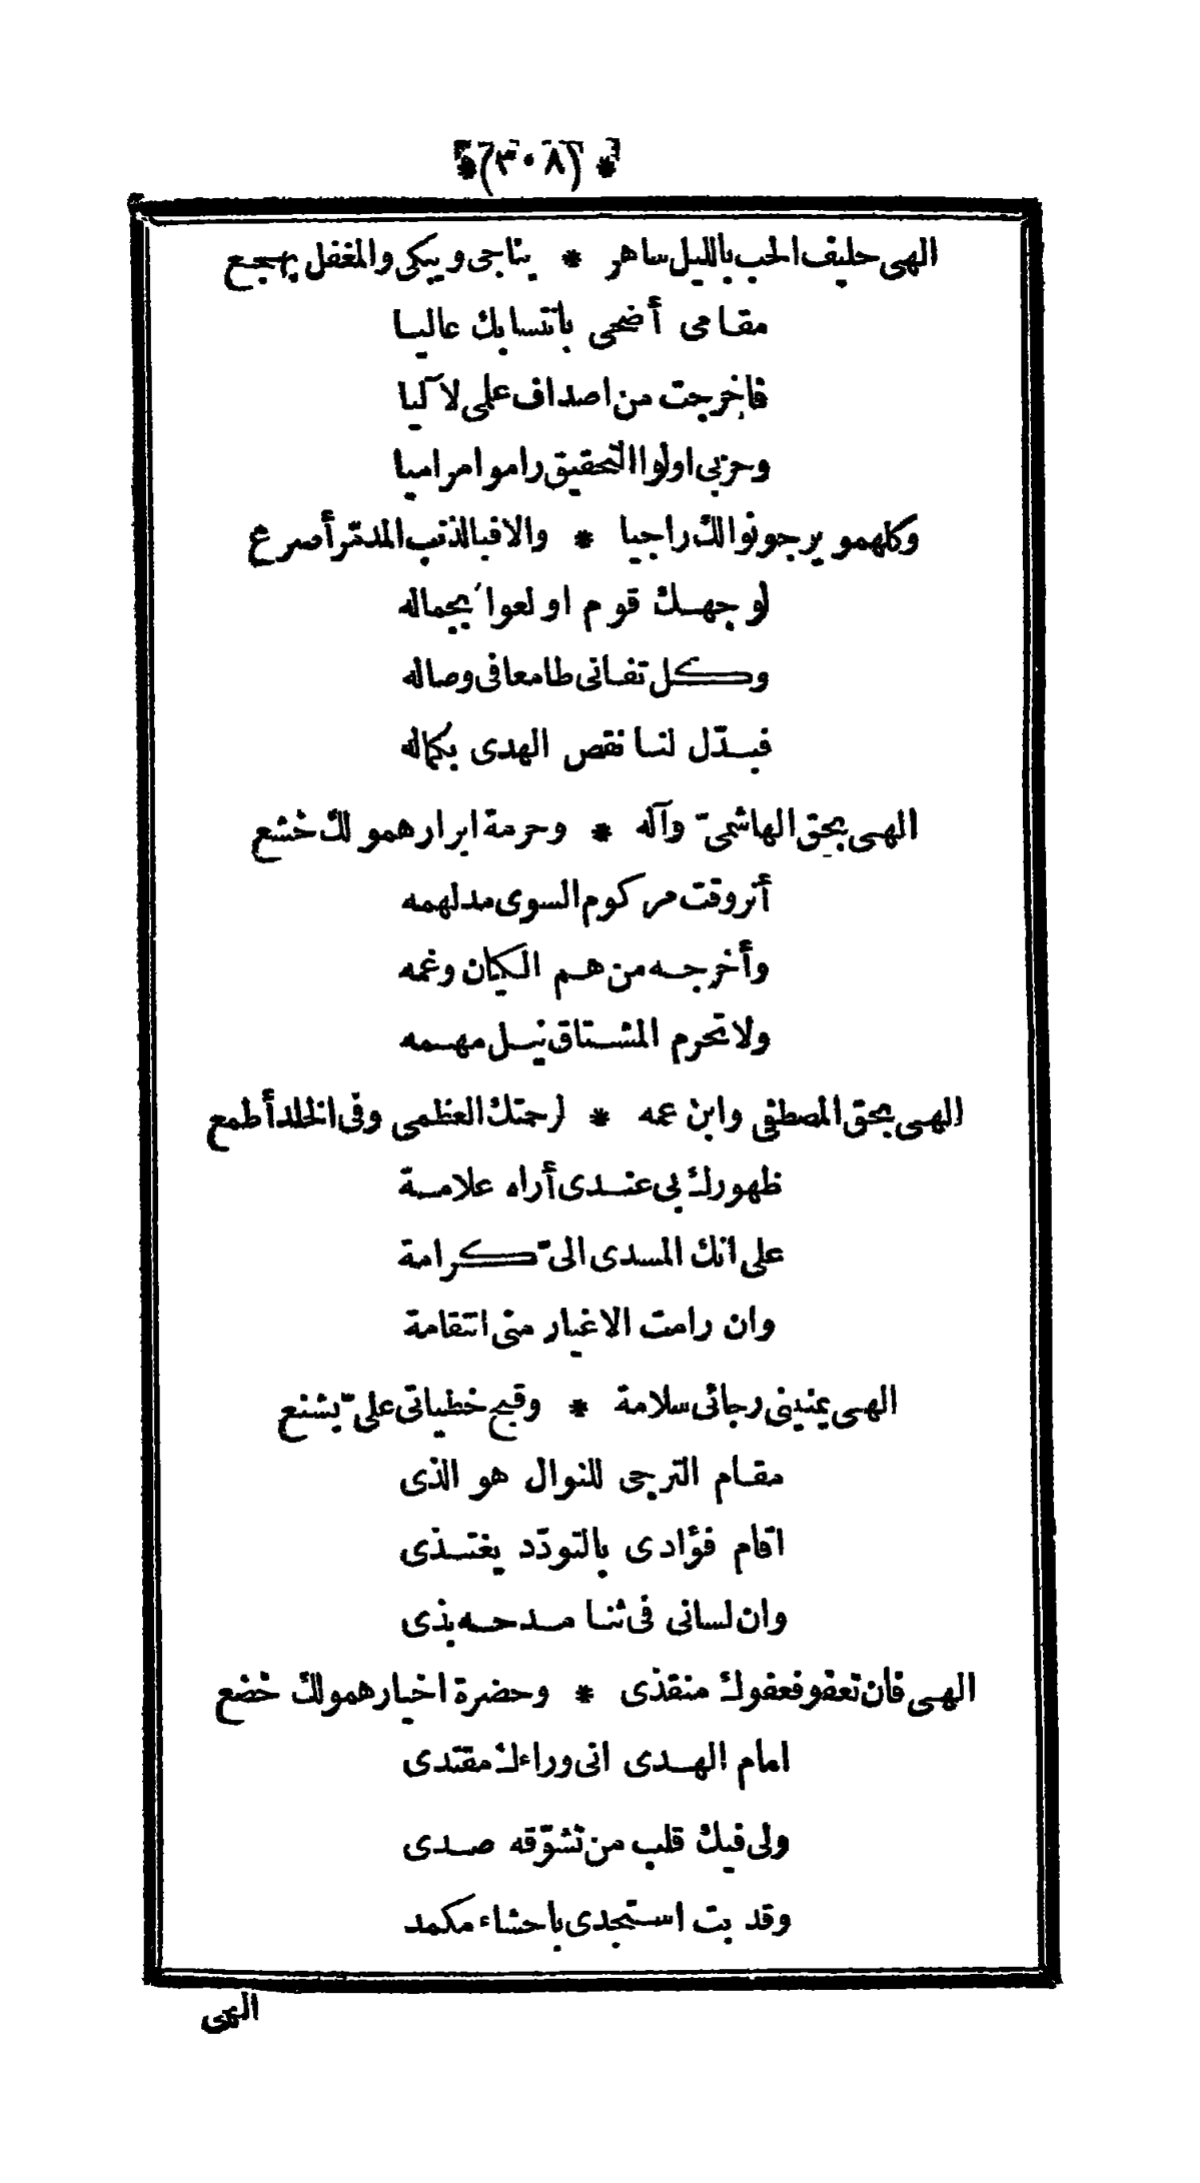 *(٣٠٨)*
الهى حليف الحب بالليل ساهر * يناجى ويبكى والمغفل يهجع
مقامى أضحى بانتسابك عاليا
فاخرجت من اصداف علمى لآليا
وحزبى اولوا التحقيق راموا مراميا
وكلهمو يرجو نوالك راجيا * والا فبالذنب المدمّر أصرع
لوجهك قوم اولعوا بجماله
وكل تفانى طامعا فى وصاله
فبدّل لنا نقص الهدى بكماله
الهى بحق الهاشمىّ وآله * وحرمة ابرار همو لك خشع
أنر وقت مركوم السوى مدلهمه
وأخرجه من هم الكيان وغمه
ولا تحرم المشتاق نيل مهمه
الهى بحق المصطفى وابن عمه * لرحمتك العظمى وفى الخلد أطمع
ظهورك بى عندى أراه علامة
على انك المسدى الىّ كرامة
وان رامت الاغيار منى انتقامة
الهى يمنينى رجائى سلامة * وقبح خطياتى علىّ يشنع
مقام الترجى للنوال هو الذى
اقام فؤادى بالتودّد يغتذى
وان لسانى فى ثنا مدحه بذى
الهى فان تعفو فعفوك منقذى * وحضرة اخيار همو لك خضع
امام الهدى انى وراءك مقتدى
ولى فيك قلب من تشوّقه صدى
وقد بت استجدى باحشاء مكمد
الهى